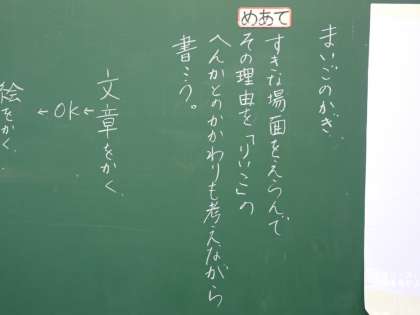 まいごのかぎ
めあて
すきな場面をえらんで
その理由を「りいこ」の
へんかとのかかわりも考えながら
書こう。
文章をかく
←OK←
絵をかく